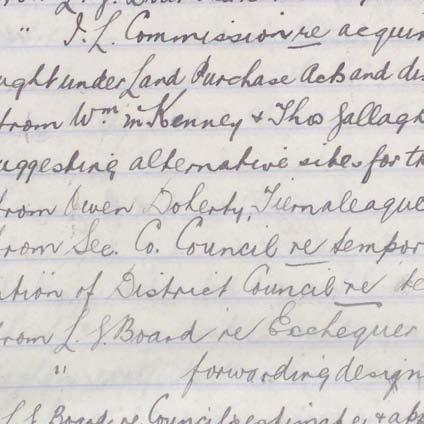 " I. L. Commission re acquir
ught under Land Purchase Acts and dis
from Wm McKenney & Thos Gallagh
uggesting alternative sites for th
from Owen Doherty, Tiernaleague
from Sec. Co. Council re tempor
ation of District Council re te
from L. G. Board re Exchequer
" forwarding design
L G Board re Council's estimate, &